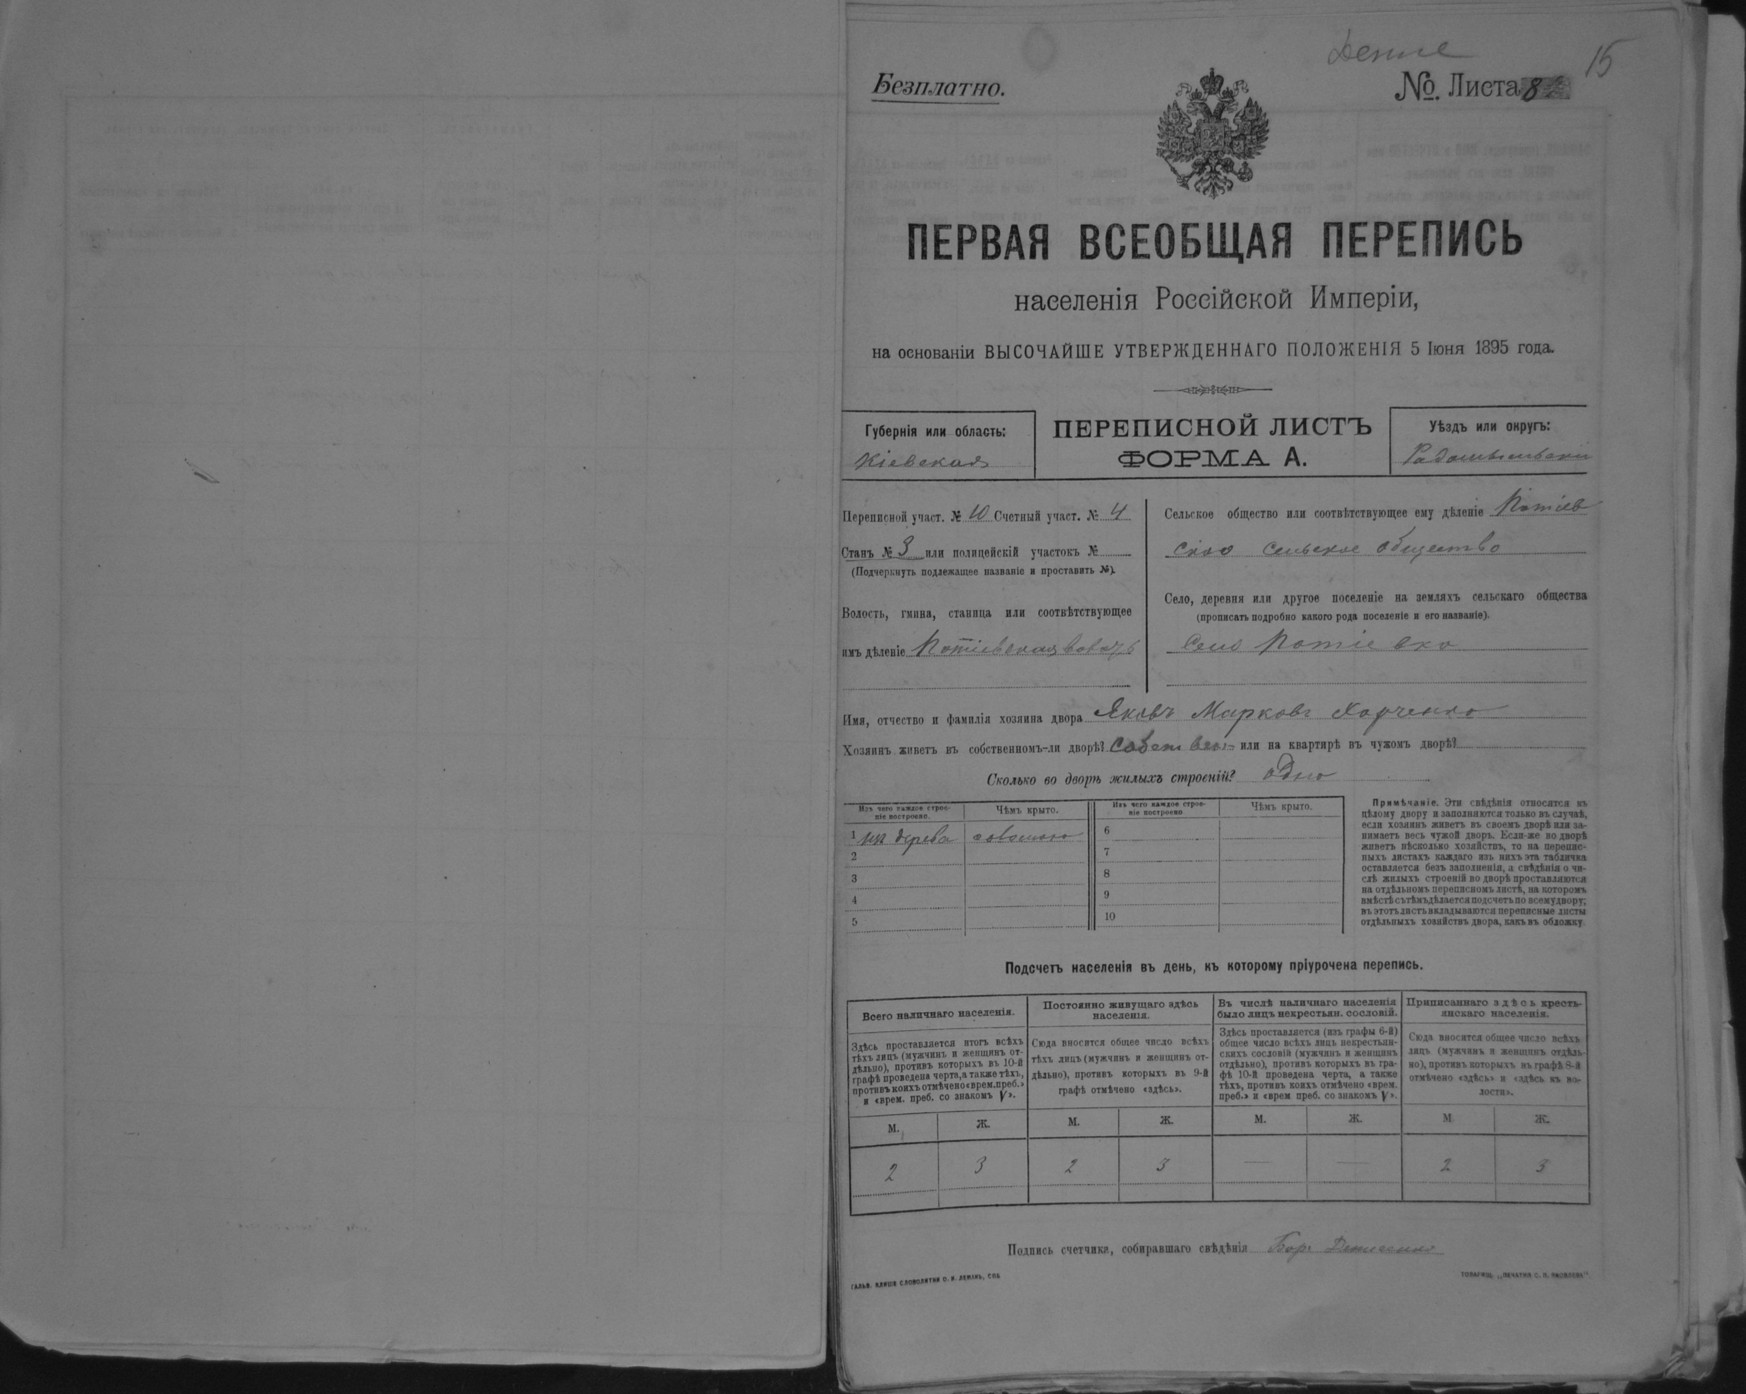 15
Безплатно.
№. Листа 8
ПЕРВАЯ ВСЕОБЩАЯ ПЕРЕПИСЬ
населенія Россійской Имперіи,
на основаніи ВЫСОЧАЙШЕ УТВЕРЖДЕННАГО ПОЛОЖЕНІЯ 5 Іюня 1895 года.
Губернія или область:
Кіевская
ПЕРЕПИСНОЙ ЛИСТЪ
ФОРМА А.
Уѣздъ или округъ:
Радомысльскій
Переписной участ. № 10 Счетный участ. № 4
Станъ № 3 или полицейскій участокъ №
(Подчеркнуть подлежащее названіе и проставить №).
Волость, гмина, станица или соотвѣтствующее
имъ дѣленіе Потіевская волость
Сельское общество или соотвѣтствующее ему дѣленіе Потіев
ское сельское общество
Село, деревня или другое поселеніе на земляхъ сельскаго общества
(прописать подробно какого рода поселеніе и его названіе).
Село Потіевка
Имя, отчество и фамилія хозяина двора Яковъ Марковъ Харченко
Хозяинъ живетъ въ собственномъ-ли дворѣ? собствен или на квартирѣ въ чужомъ дворѣ?
Сколько во дворѣ жилыхъ строеній? одно
Изъ чего каждое строе-
ніе построено.
Чѣмъ крыто.
Изъ чего каждое строе-
ніе построено
Чѣмъ крыто.
1 изъ дерева соломою
2
3
4
5
6
7
8
9
10
Примѣчаніе. Эти свѣдѣнія относятся къ
цѣлому двору и заполняются только въ случаѣ,
если хозяинъ живетъ въ своемъ дворѣ или за-
нимаетъ весь чужой дворъ. Если-же во дворѣ
живетъ нѣсколько хозяйствъ, то на перепис-
ныхъ листахъ каждаго изъ нихъ эта табличка
оставляется безъ заполненія, а свѣдѣнія о чи-
слѣ жилыхъ строеній во дворѣ проставляются
на отдѣльномъ переписномъ листѣ, на которомъ
вмѣстѣ съ тѣмъ дѣлается подсчетъ по всему двору;
въ этотъ листъ вкладываются переписные листы
отдѣльныхъ хозяйствъ двора, какъ въ обложку.
Подсчетъ населенія въ день, къ которому пріурочена перепись.
Всего наличнаго населенія.
Здѣсь проставляется итогъ всѣхъ
тѣхъ лицъ (мужчинъ и женщинъ от-
дѣльно), противъ которыхъ въ 10-й
графѣ проведена черта, а также тѣхъ,
противъ коихъ отмѣчено «врем. преб.»
и «врем. преб. со знакомъ V».
Постоянно живущаго здѣсь
населенія.
Сюда вносится общее число всѣхъ
тѣхъ лицъ (мужчинъ и женщинъ от-
дѣльно), противъ которыхъ въ 9-й
графѣ отмѣчено «здѣсь».
Въ числѣ наличнаго населенія
было лицъ некрестьян. сословій.
Здѣсь проставляется (изъ графы 6-й)
общее число всѣхъ лицъ некрестьян-
скихъ сословій (мужчинъ и женщинъ
отдѣльно), противъ которыхъ въ гра-
фѣ 10-й проведена черта, а также
тѣхъ, противъ коихъ отмѣчено «врем.
преб.» и «врем преб. со знакомъ V».
Приписаннаго здѣсь кресть-
янскаго населенія.
Сюда вносится общее число всѣхъ
лицъ (мужчинъ и женщинъ отдѣль-
но), противъ которыхъ въ графѣ 8-й
отмѣчено «здѣсь» и «здѣсь къ во-
лости».
М. Ж. М. Ж. М. Ж. М. Ж.
2 3 2 3 — — 2 3
Подпись счетчика, собиравшаго свѣдѣнія
ГАЛЬВ. КЛИШЕ СЛОВОЛИТНИ О. И. ЛЕМАНЪ, СПБ
ТОВАРИЩ. „ПЕЧАТНЯ С. П. ЯКОВЛЕВА".